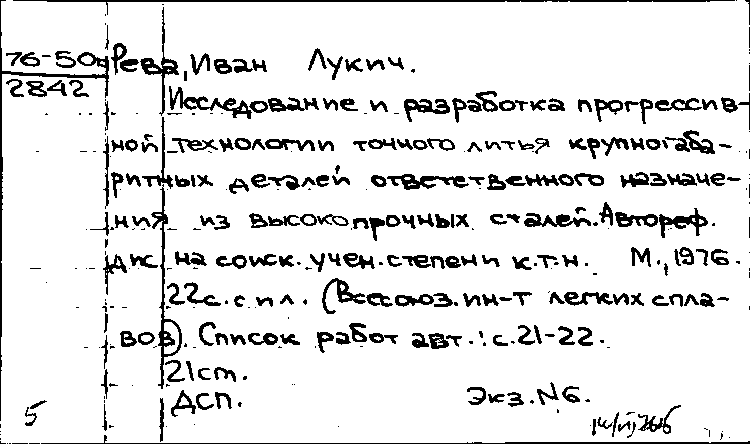 76-50 Рева, Иван Лукич.
2842
Исследование и разработка прогрессив-
ной технологии точного литья крупногаба-
ритных деталей ответственного назначе-
ния из высокопрочных сталей. Автореф.
дис. на соиск. учен. степени к.т.н. М., 1976.
22с. с ил. (Всесоюз. ин-т легких спла-
вов). Список работ авт.: с. 21-22.
21см.
ДСП. Экз. N6.
5